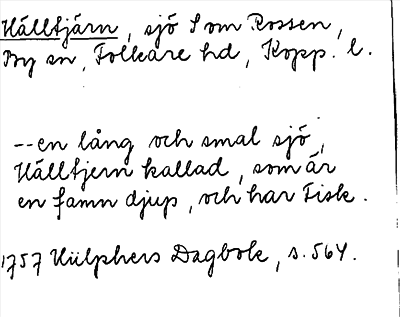 Hälltjärn, sjö S om Rossen,
By sn, Folkare hd, Kopp. l.
--en lång och smal sjö,
Hälltjern kallad, som är
en famn djup, och har Fisk.
1757 Hülphers Dagbok, s. 564.